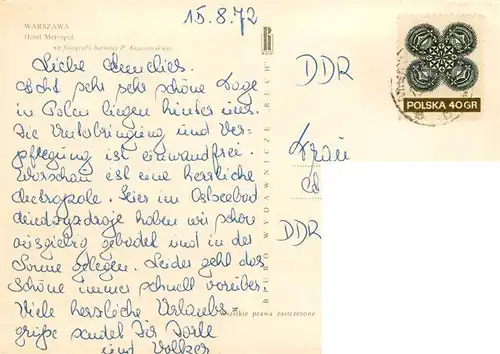 WARSZAWA
Hotel Metropol
wg fotografii barwnej P. Krassowskiego
15.8.72
Liebe
Acht sehr sehr schöne Tage
in Polen liegen hinter uns.
Die Unterbringung und Ver-
pflegung ist einwandfrei.
Warschau ist eine herrliche
Metropole. Hier im Ostseebad
Miedzyzdroje haben wir schon
ausgiebig gebadet und in der
Sonne gelegen. Leider geht das
Schöne immer schnell vorüber.
Viele herzliche Urlaubs-
grüße sendet Dir Dorle
und Volker
BIURO WYDAWNICZE „RUCH”
Wszelkie prawa zastrzeżone
POLSKA 40 GR
DDR
Frau
DDR